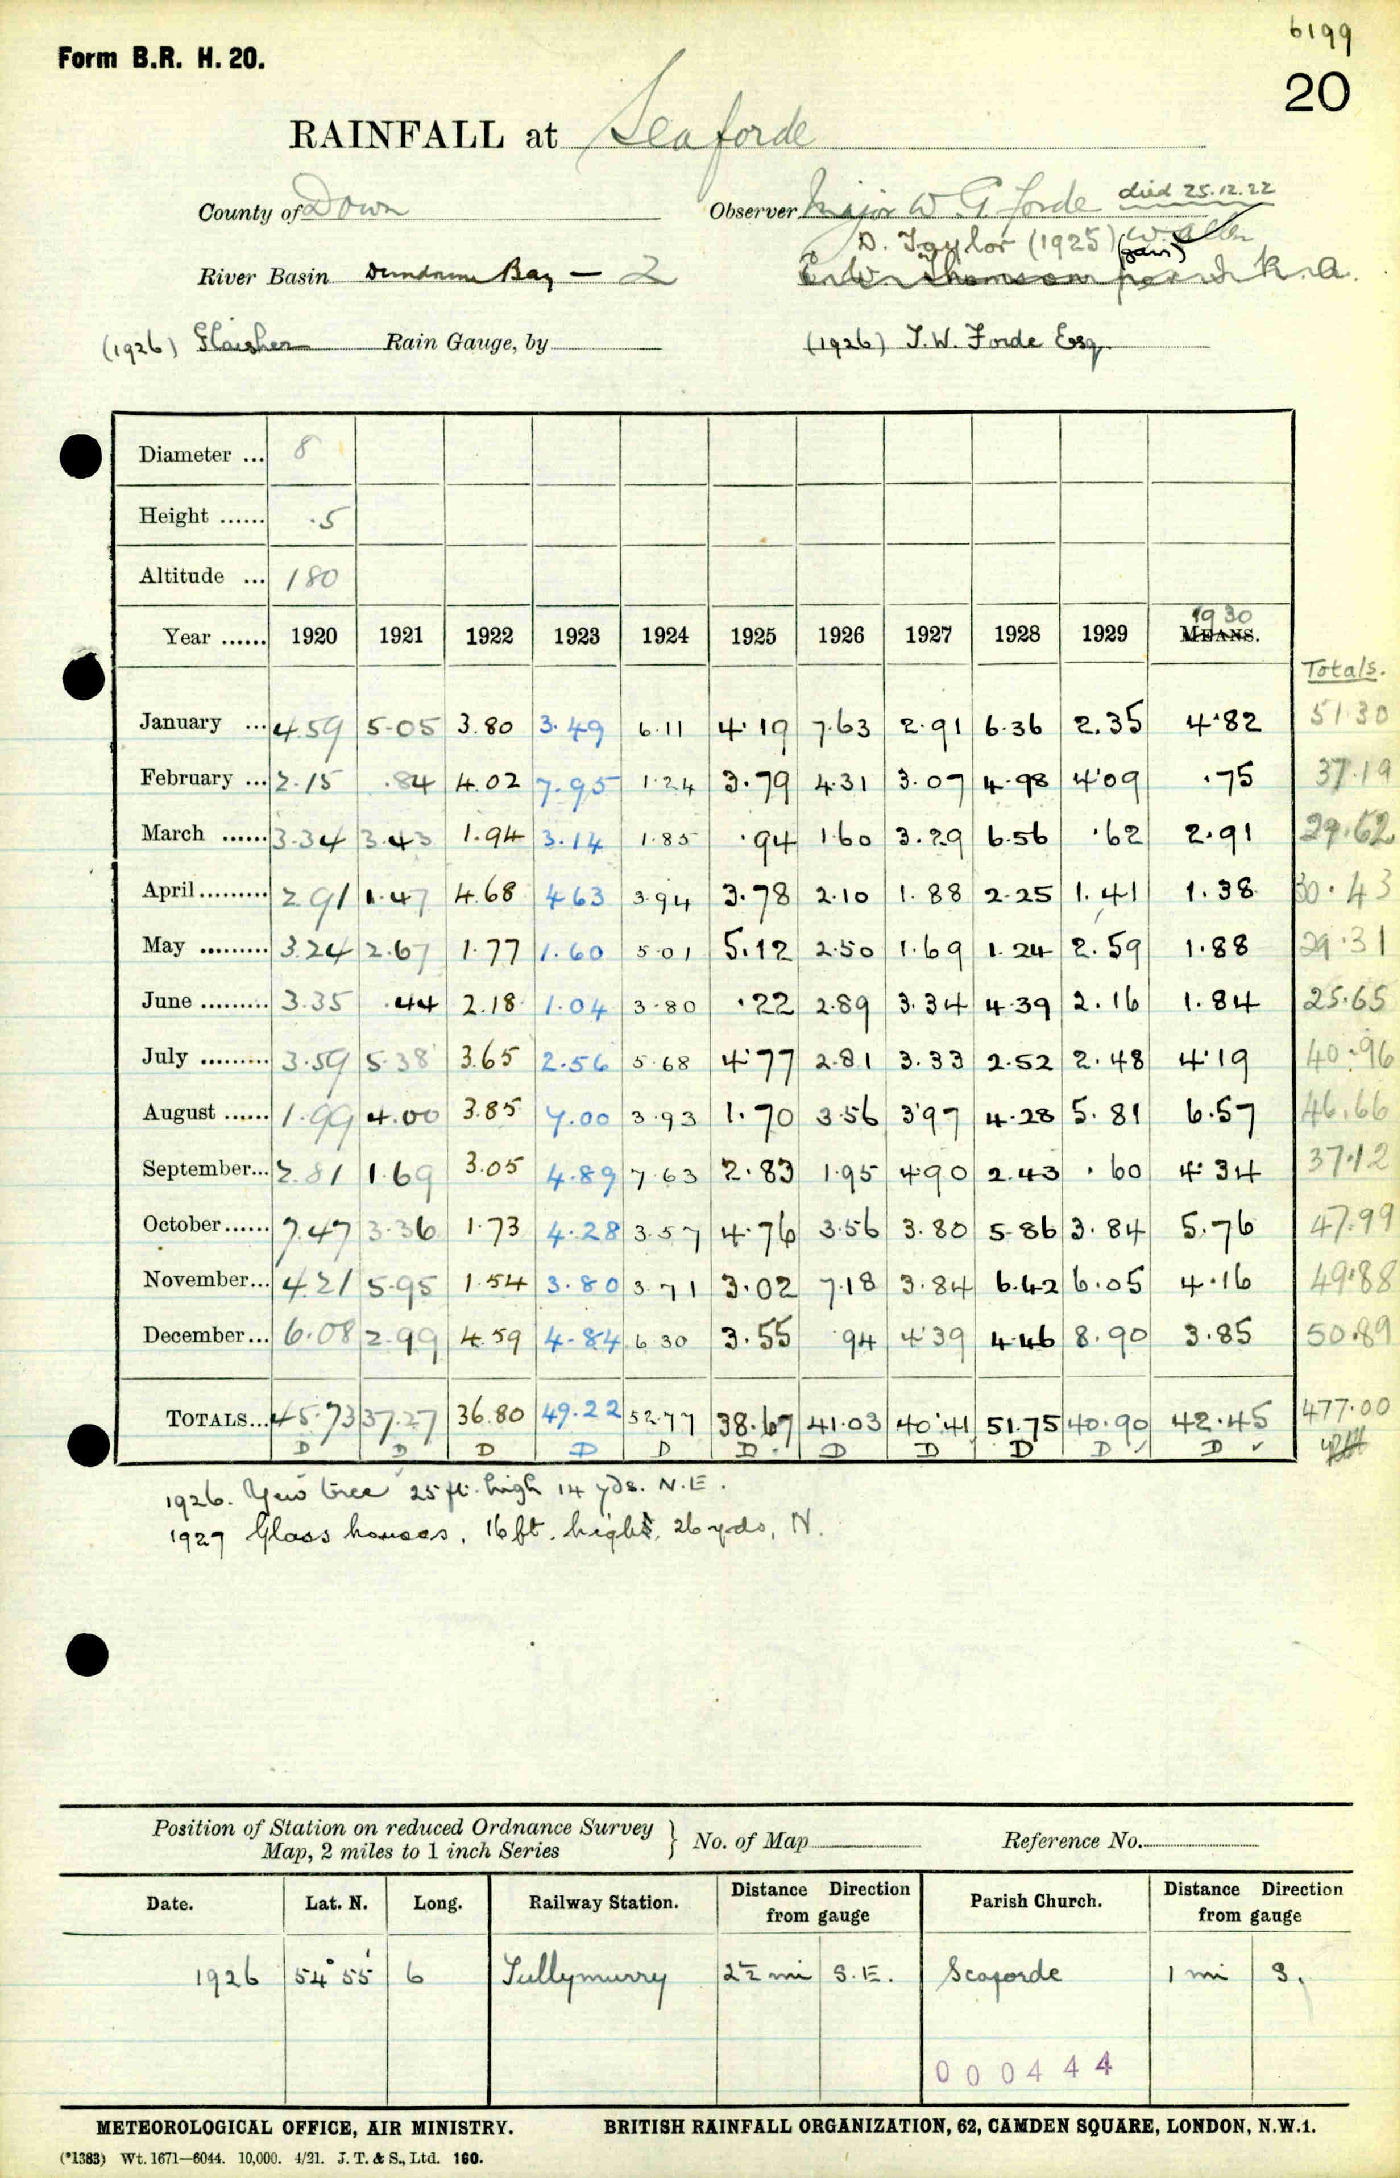 6199
Form B.R. H. 20.
20
RAINFALL at Seaforde
County of Down Observer Major W G Forde died 25.12.22
D. Taylor (1925) W. Allen
River Basin Dundrum Bay — 2 (gaui)
(1926) Rain Gauge, by (1926) T.W. Forde Esq
Diameter ... 8
Height ...... .5
Altitude ... 180
Year ...... 1920 1921 1922 1923 1924 1925 1926 1927 1928 1929 MEANS. 1930
Totals.
January ... 4.59 5.05 3.80 3.49 6.11 4.19 7.63 2.91 6.36 2.35 4.82 51.30
February ... 2.15 .84 4.02 7.95 1.24 3.79 4.31 3.07 4.98 4.09 .75 37.19
March ...... 3.34 3.43 1.94 3.14 1.85 .94 1.60 3.29 6.56 .62 2.91 29.62
April ......... 2.91 1.47 4.68 4.63 3.94 3.78 2.10 1.88 2.25 1.41 1.38 30.43
May ......... 3.24 2.67 1.77 1.60 5.01 5.12 2.50 1.69 1.24 2.59 1.88 29.31
June ......... 3.35 .44 2.18 1.04 3.80 .22 2.89 3.34 4.39 2.16 1.84 25.65
July ......... 3.59 5.38 3.65 2.56 5.68 4.77 2.81 3.33 2.52 2.48 4.19 40.96
August ...... 1.99 4.00 3.85 7.00 3.93 1.70 3.56 3.97 4.28 5.81 6.57 46.66
September... 2.81 1.69 3.05 4.89 7.63 2.83 1.95 4.90 2.43 .60 4.34 37.12
October...... 7.47 3.36 1.73 4.28 3.57 4.76 3.56 3.80 5.86 3.84 5.76 47.99
November... 4.21 5.95 1.54 3.80 3.71 3.02 7.18 3.84 6.42 6.05 4.16 49.88
December... 6.08 2.99 4.59 4.84 6.30 3.55 .94 4.39 4.46 8.90 3.85 50.89
TOTALS... 45.73 37.27 36.80 49.22 52.77 38.67 41.03 40.41 51.75 40.90 42.45 477.00
D D D D D D D D D D D
1926. Yew tree 25 ft. high 14 yds. N.E.
1927 Glass houses, 16 ft. high, 26 yds, N.
Position of Station on reduced Ordnance Survey
Map, 2 miles to 1 inch Series } No. of Map Reference No.
Date. Lat. N. Long. Railway Station. Distance Direction from gauge Parish Church. Distance Direction from gauge
1926 54° 55' 6 Tullymurry 2½ mi S.E. Seaforde 1 mi S.
000444
METEOROLOGICAL OFFICE, AIR MINISTRY. BRITISH RAINFALL ORGANIZATION, 62, CAMDEN SQUARE, LONDON, N.W.1.
(*1383) Wt. 1671—6044. 10,000. 4/21. J. T. & S., Ltd. 160.